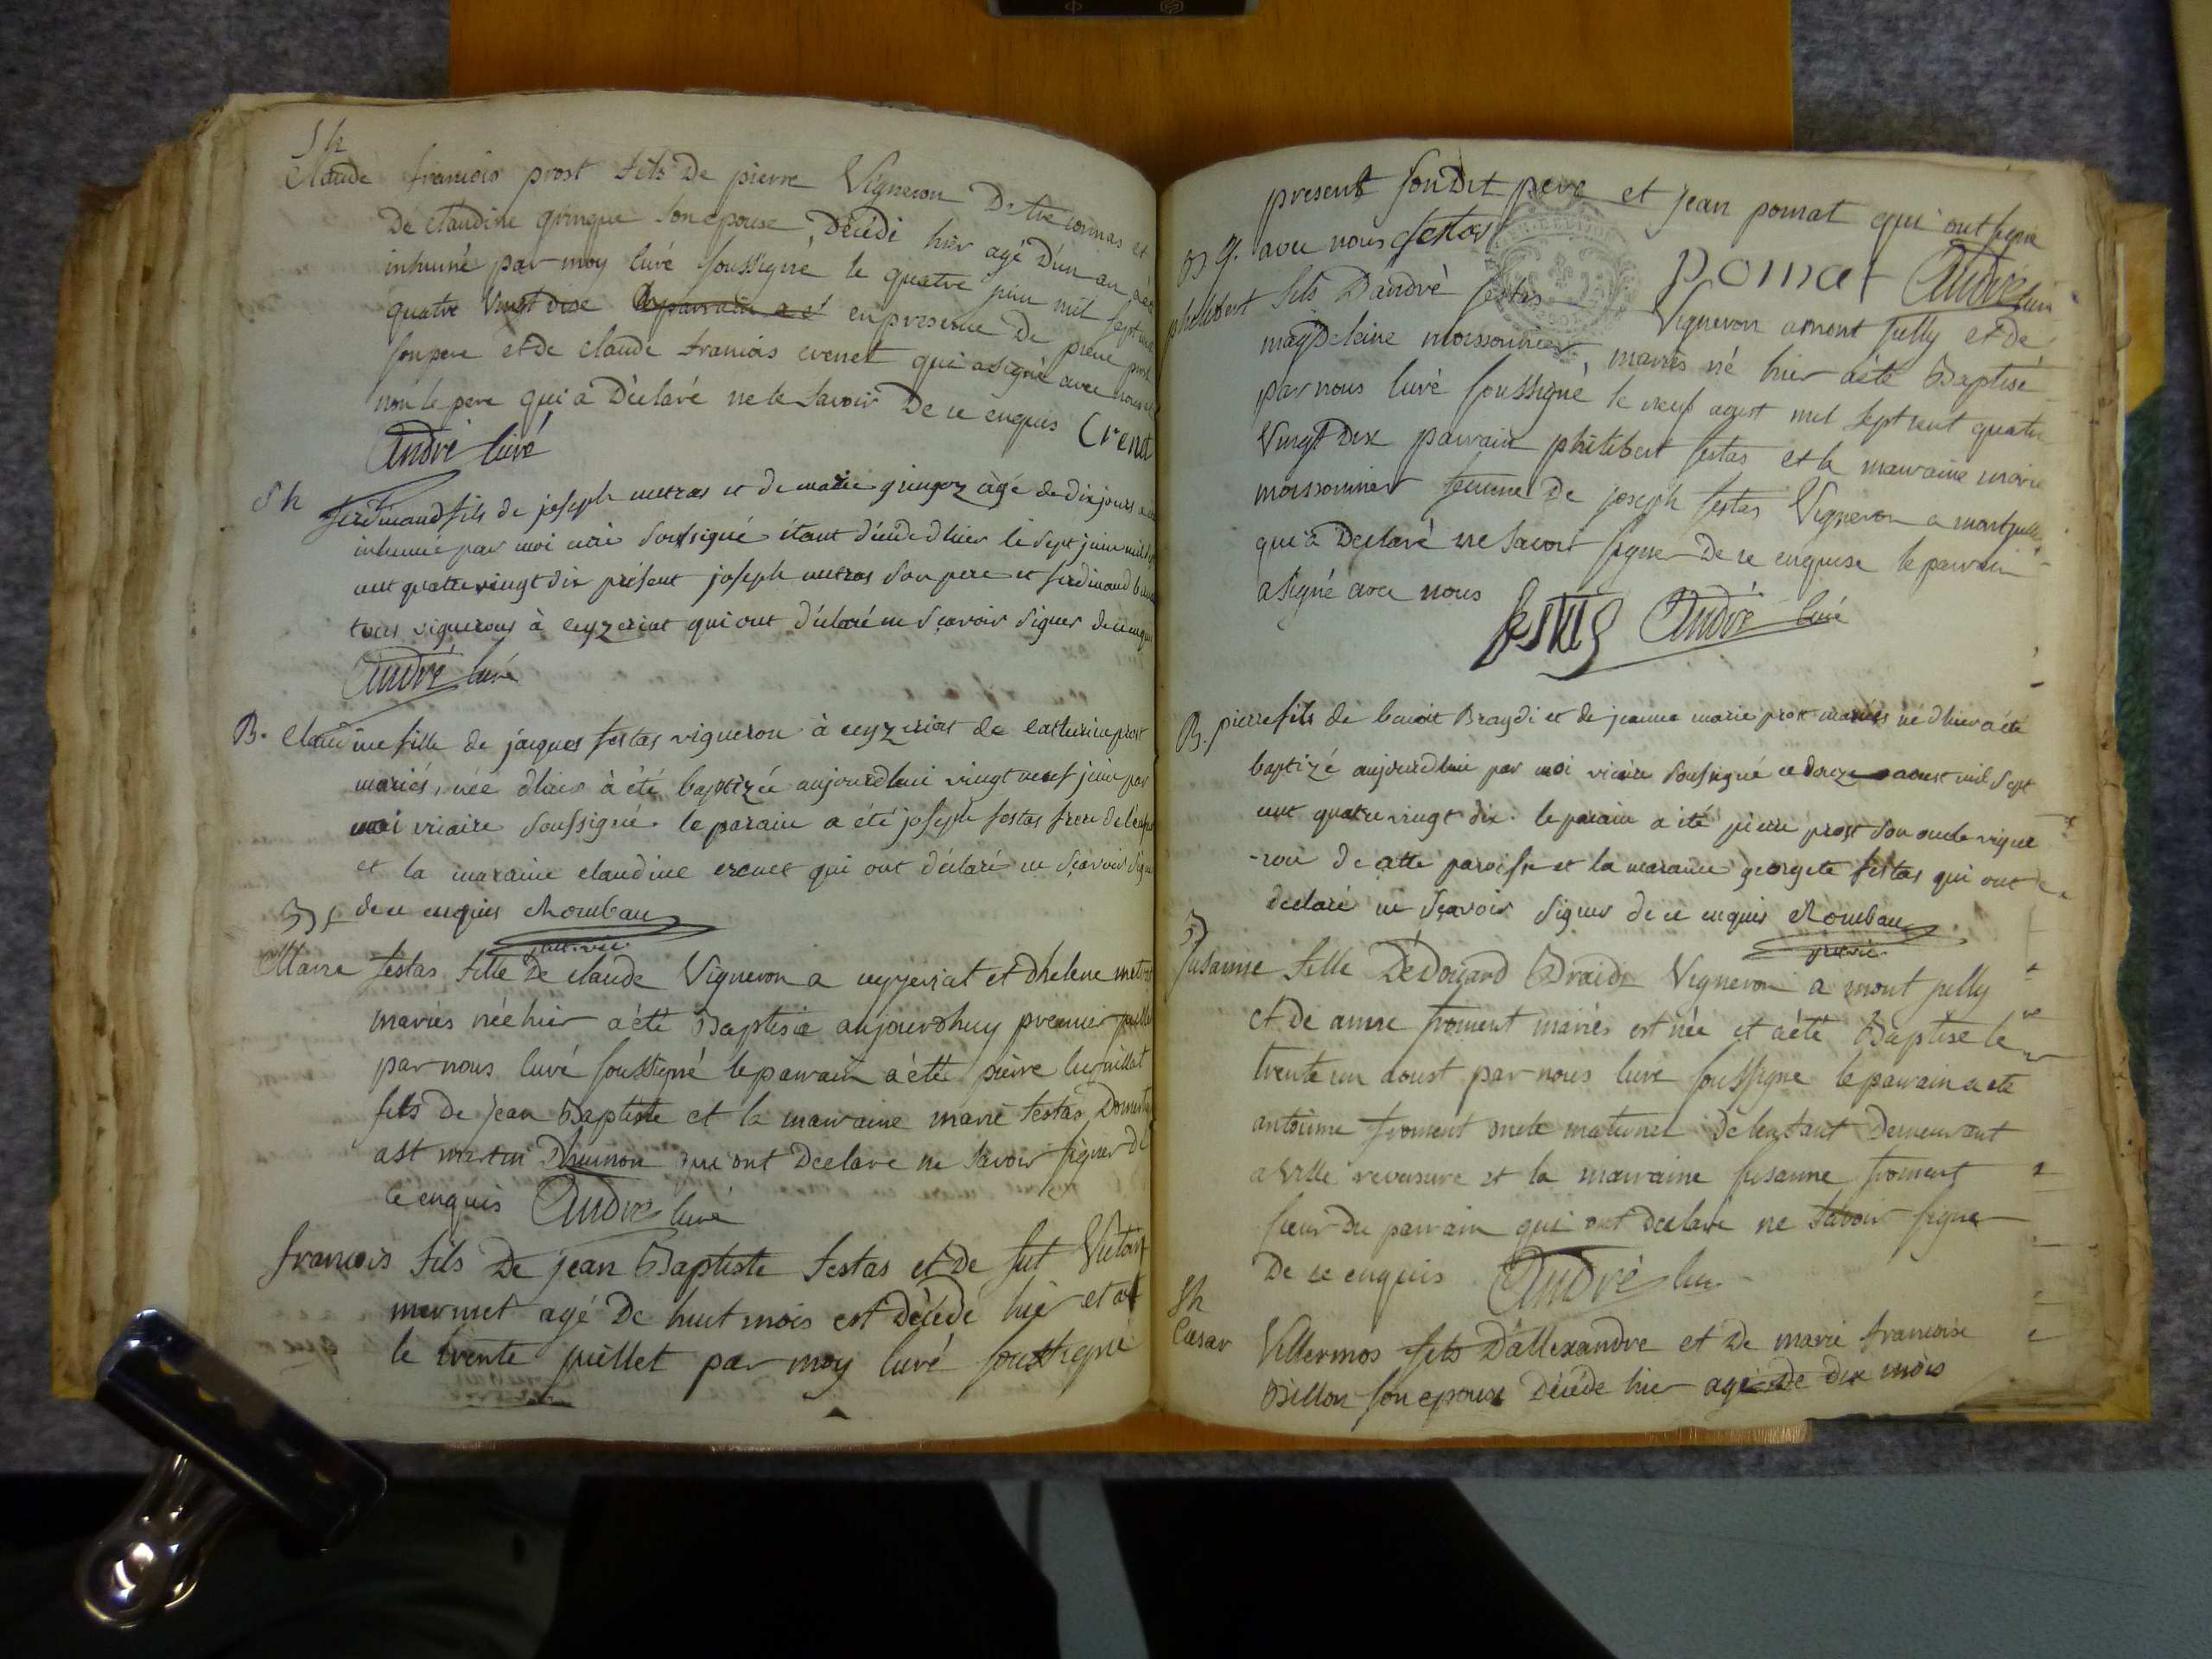 Sh
Claude francois prost fils De pierre Vigneron De tre connas et
De claudine gringue son epouse, Décédé hier agé D'un an a été
inhumé par moy curé soussigné le quatre juin mil sept cent
quatre Vingt dise en presence De pierre prost
son pere et de claude francois crenet qui a signé avec nous
non le pere qui a Déclaré ne le savoir De ce enquis Crenet
André curé
Sh ferdinand fils de joseph metras et de marie gringoz âgé de dix jours a été
inhumé par moi curé soussigné étant décédé d'hier le sept juin mil sept
cent quatre vingt dix présent joseph metras son pere et ferdinand
tous vignerons à ceyzeriat qui ont déclaré ne sçavoir signer de ce enquis
André curé
B. Claudine fille de jacques festas vigneron à ceyzeriat de catherine prost
mariés, née d'hier à été baptizée aujourd'hui vingt neuf juin par
moi vicaire soussigné. le parain a été joseph festas frere de l'enfant
et la maraine claudine crenet qui ont déclaré ne sçavoir signer
de ce enquis Mombau
B
Marie festas fille De claude Vigneron a ceyzeriat et dhelene metras
mariés née hier a été Baptisée aujourdhuy premier juillet
par nous curé soussigné le parrain a été pierre
fils de jean Baptiste et la marraine marie festas Domestique
a St martin Dhumon qui ont Declare ne savoir signer de
ce enquis André curé
francois fils De jean Baptiste festas et De fut Victoire
mermet agé De huit mois est Décédé hier et a été
le trente juillet par moy curé soussigné
present son Dit pere et jean pomat qui ont signé
avec nous festas pomat André curé
B
philibert fils D'andré festas Vigneron a mont jully et de
magdelaine moissonnier, mariés né hier a été Baptisé
par nous curé soussigné le neuf aoust mil sept cent quatre
Vingt Dix parrain philibert festas et la marraine marie
moissonnier femme De joseph festas Vigneron a montjully
qui a Declaré ne savoir signer De ce enquise le parrain
a signé avec nous festas André curé
B. pierre fils de benoit Braydi et de jeanne marie prost mariés né d'hier a été
baptizé aujourd'hui par moi vicaire soussigné ce douze aoust mil sept
cent quatre vingt dix. le parain a été pierre prost son oncle vigne
-ron de cette paroisse et la maraine georgete festas qui ont
declaré ne sçavoir signer de ce enquis Mombau
B
Susanne fille D'Edouard Braidi Vigneron a mont jully
et De anne froment mariés est née et a été Baptisé le
trente un aoust par nous curé soussigne le parrain a ete
antoinne froment oncle maternel De l'enfant Demeurant
a Ville reversure et la marraine susanne froment
sœur Du parrain qui ont Declare ne savoir signer
De ce enquis André curé
Sh
Cæsar Villermos fils D'allexandre et De marie francoise
Billon son epouse Décédé hier agé De dix mois